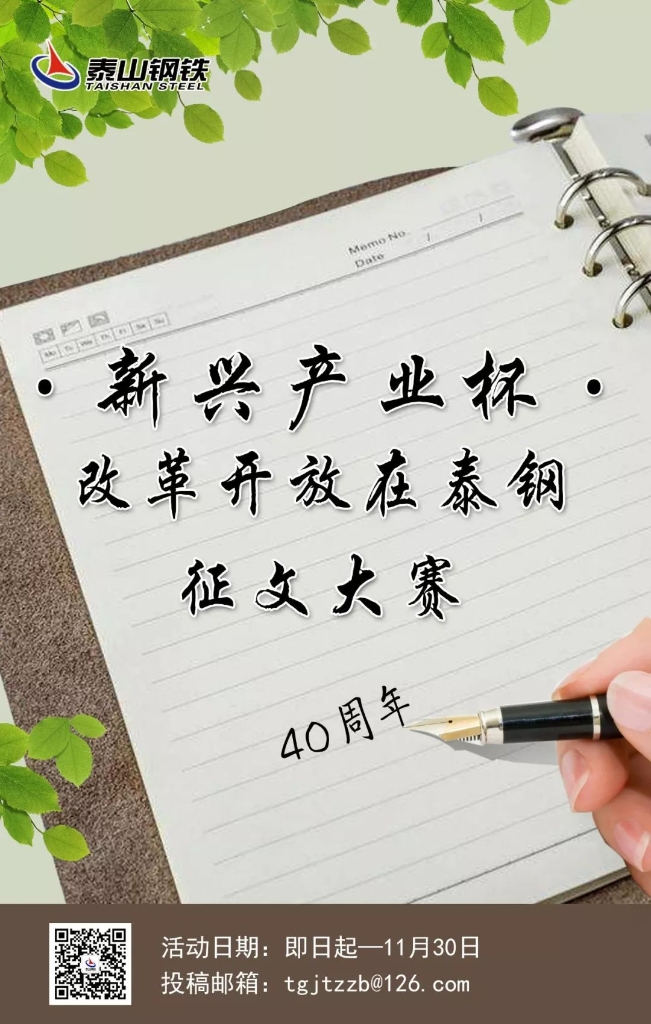 泰山钢铁
TAISHAN STEEL
Memo No.
Date / /
Mo Tu We Th Fr Sa Su
·新兴产业杯·
改革开放在泰钢
征文大赛
40周年
活动日期：即日起—11月30日
投稿邮箱：tgjtzzb@126.com